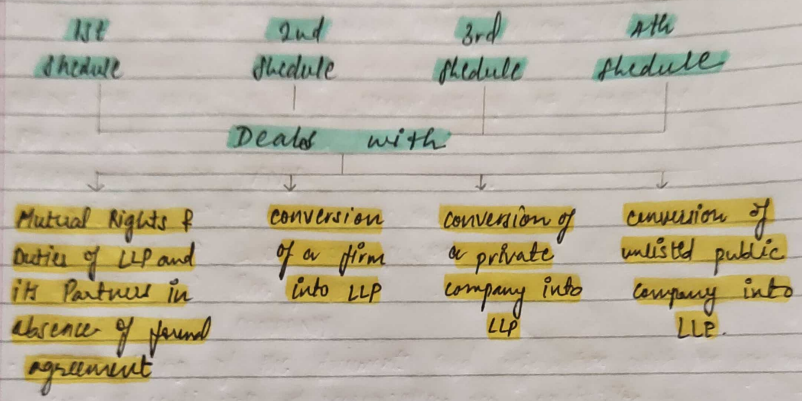 1st
Shedule
2nd
Shedule
3rd
Shedule
4th
Shedule
Deals with
Mutual Rights &
Duties of LLP and
its Partners in
absence of formal
agreement
conversion
of a firm
into LLP
conversion of
a private
company into
LLP
conversion of
unlisted public
company into
LLP.